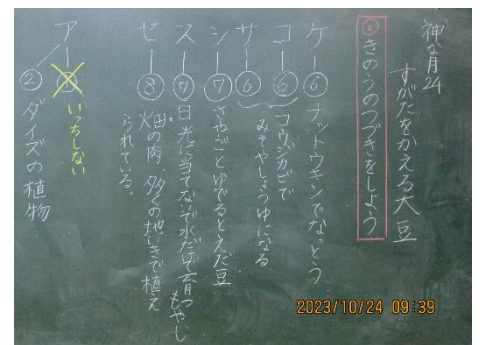 神な月24
すがたをかえる大豆
◎きのうのつづきをしよう
ケ―⑥ナットウキンでなっとう
コ―⑥コウジカビで
サ―⑥みそやしょうゆになる
シ―⑦さやごとゆでるとえだ豆
ス―⑦日光に当てないで水だけで育つもやし
セ―⑧畑の肉、多くの地いきで植え
られている。
ア―①いっちしない
②ダイズの植物
2023/10/24 09:39